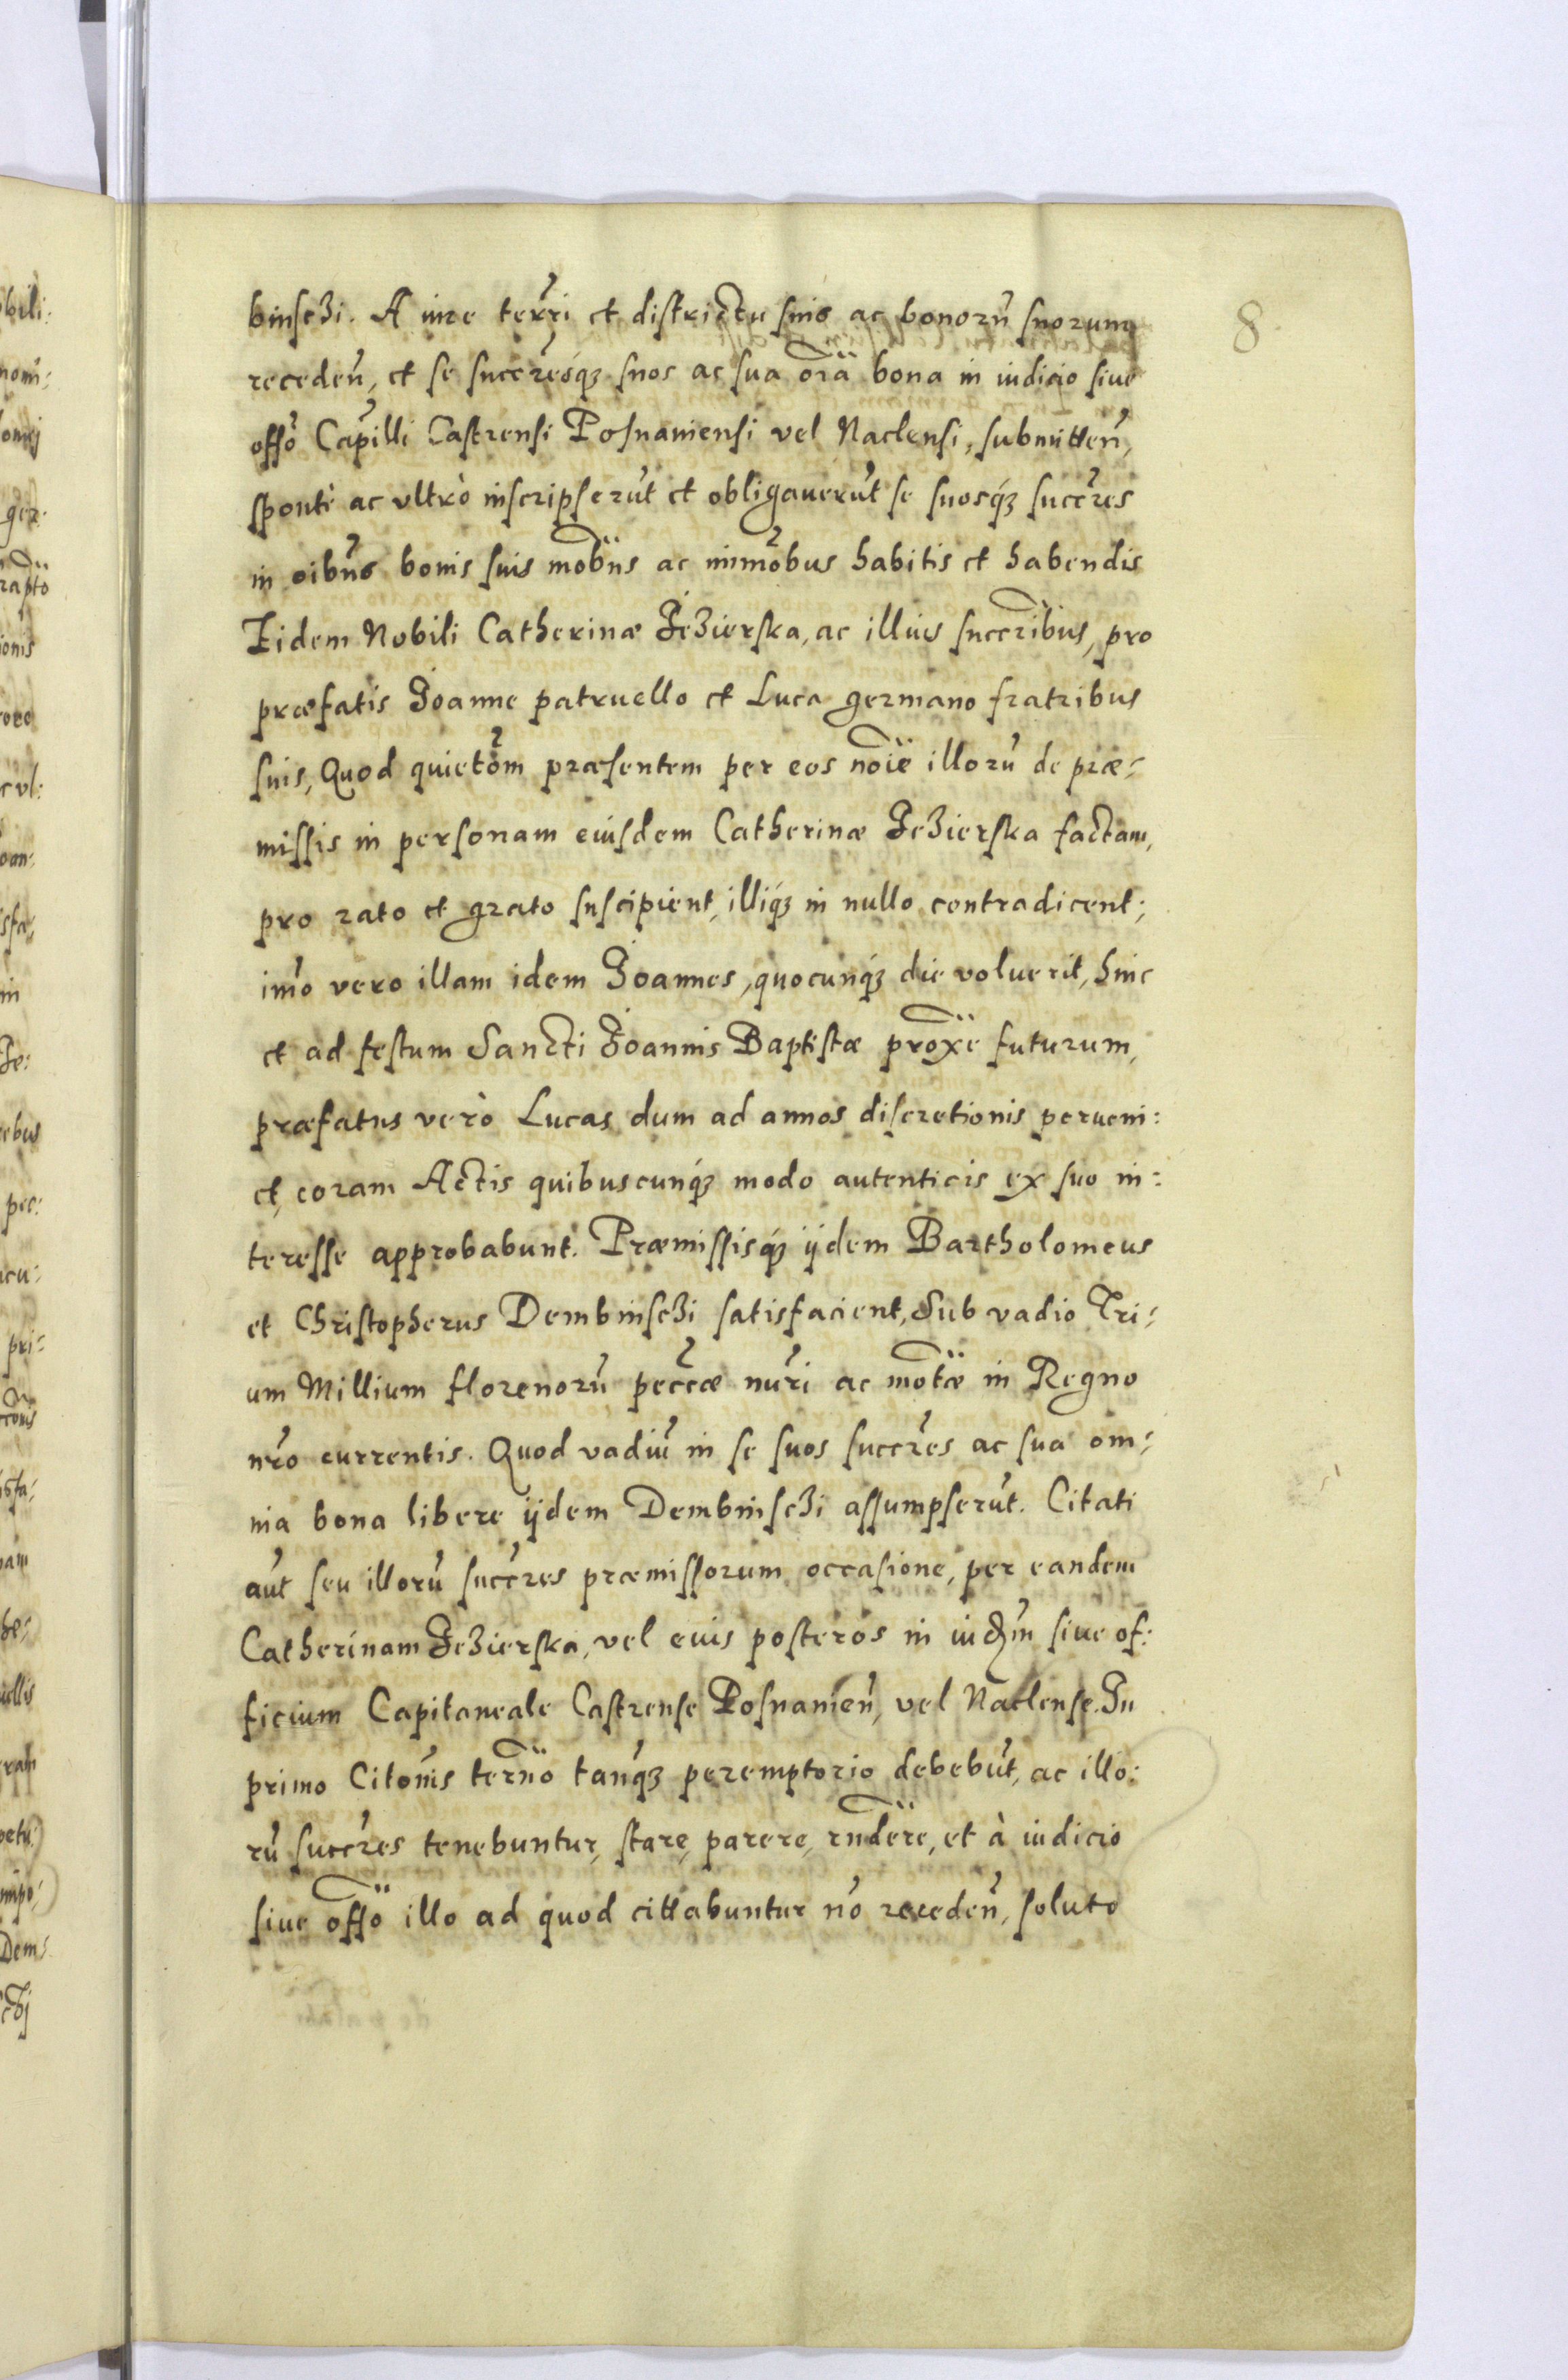 8
binschi. A iure terri et districtu suis ac bonorũ suorum
receden̄, et se succresq́ꝫ suos ac sua oīa bona in iudicio siue
offo Capilli Castrensi Posnaniensi vel Naclensi, submitten̄,
spontè ac vltrò inscripserũt et obligauerũt se suosq́ꝫ succres
in oibus bonis suis mobiis ac immobus habitis et habendis
Eidem Nobili Catherinæ Jezierska, ac illius succribus, pro
præfatis Joanne patruello et Luca germano fratribus
suis, Quod quietom præsentem per eos noie illorũ de præ-
missis in personam eiusdem Catherinæ Jezierska factam,
pro rato et grato suscipient, illiq́ꝫ in nullo contradicent;
imo vero illam idem Joannes, quocunq́ꝫ die voluerit, hinc
et ad festum Sancti Joannis Baptistæ proxe futurum,
præfatus verò Lucas dum ad annos discretionis perueni:
et, coram Actis quibuscunq́ꝫ modo autenticis ex suo in:
teresse approbabunt. Præmissisq́ꝫ ijdem Bartholomeus
et Christopherus Dembinschi satisfacient, Sub vadio Tri-
um Millium florenorũ peccæ nuri ac motæ in Regno
nro currentis. Quod vadiũ in se suos succres ac sua om-
nia bona libere ijdem Dembinschi assumpserũt. Citati
aut seu illorũ succres præmissorum occasione, per eandem
Catherinam Jezierska, vel eius posteros in iudm siue of:
ficium Capitaneale Castrense Posnanien̄, vel Naclense. In
primo Citonis terno tanq́ꝫ peremptorio debebũt, ac illo:
rũ succres tenebuntur, stare, parere, rndere, et à iudicio
siue offo illo ad quod cittabuntur nō receden̄, soluto